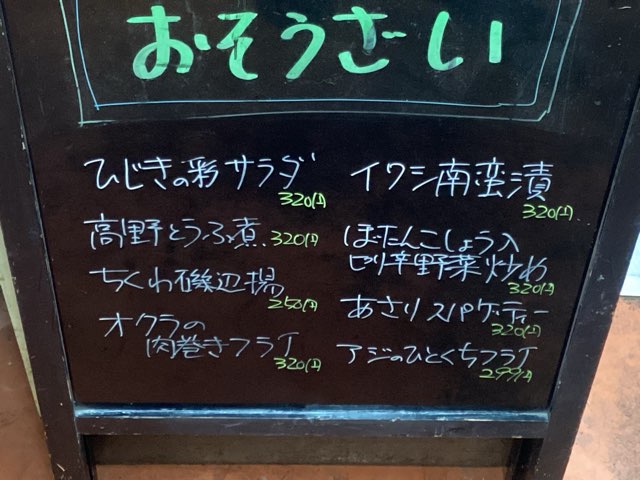 おそうざい
ひじきの彩サラダ
320円
高野とうふ煮 320円
ちくわ磯辺揚
250円
オクラの
肉巻きフライ
320円
イワシ南蛮漬
320円
ぼたんこしょう入
ピリ辛野菜炒め
320円
あさりスパゲッティー
320円
アジのひとくちフライ
299円